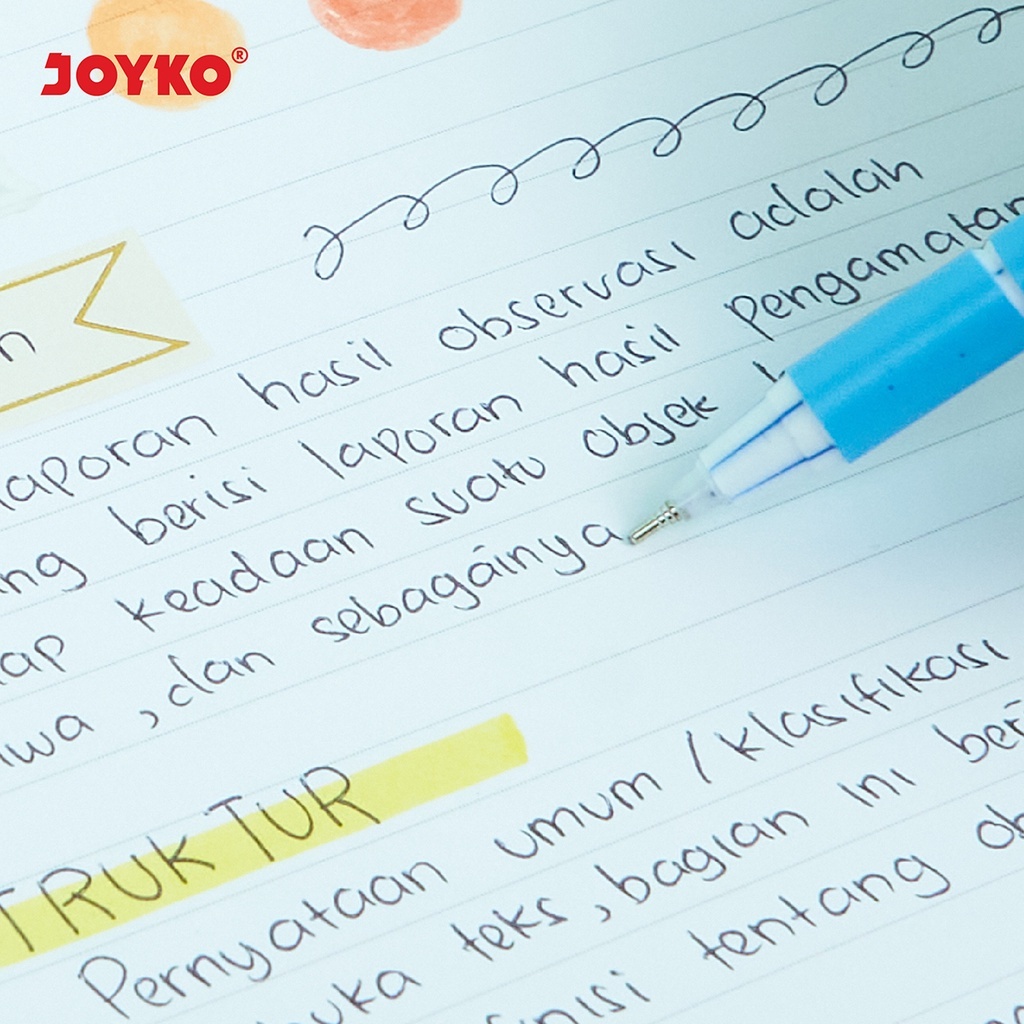 JOYKO®
n
laporan hasil observasi adalah
ng berisi laporan hasil pengamatan
ap keadaan suatu objek
iwa, dan sebagainya
TRUKTUR
Pernyataan umum / klasifikasi
uka teks, bagian ini beri
nisi tentang ob